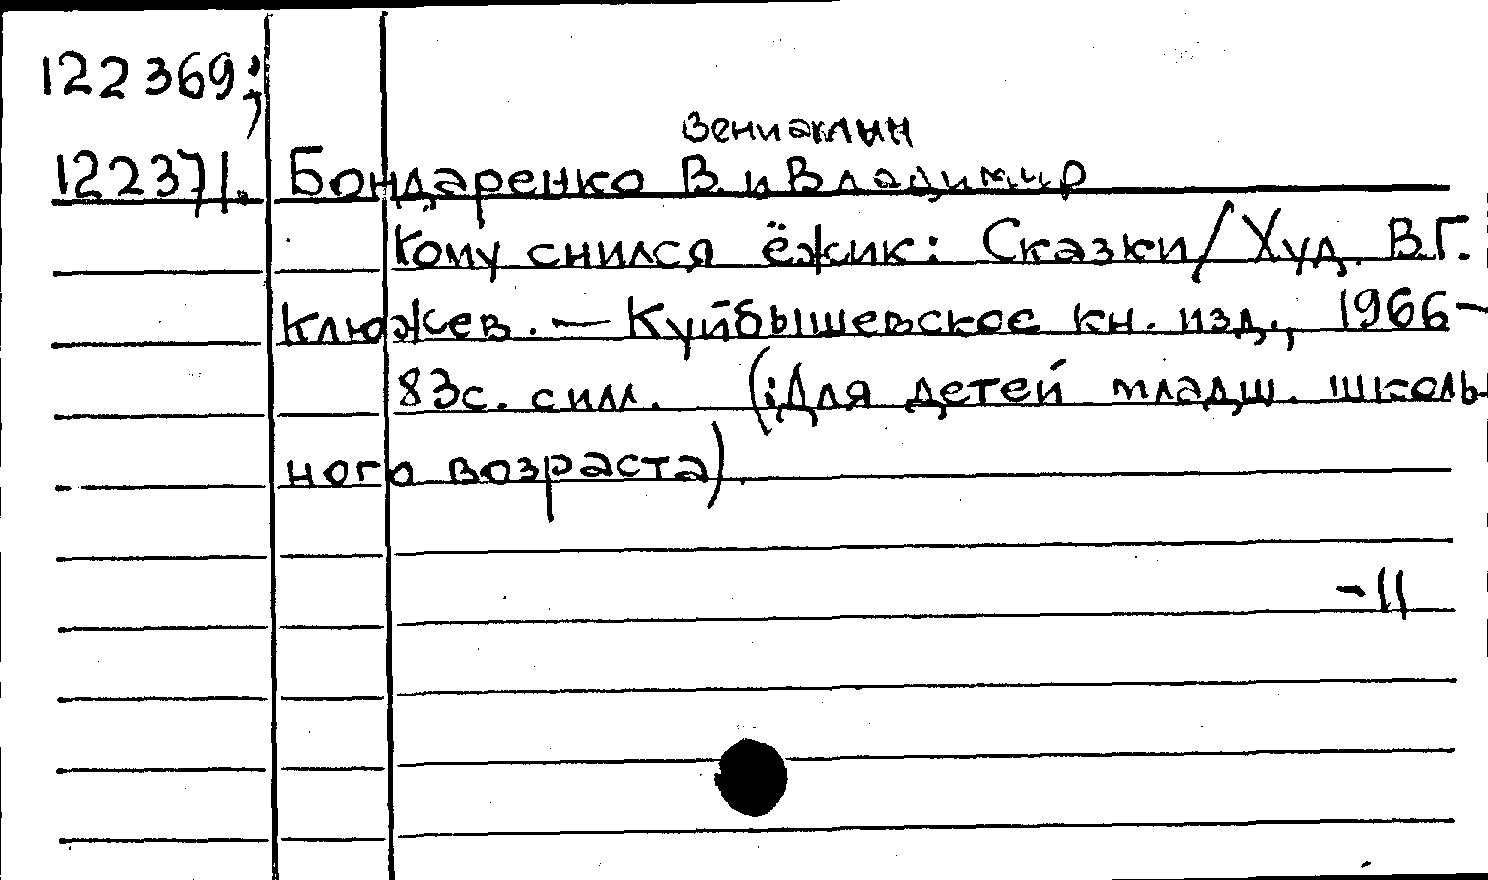 122369;
Вениамин
122371. Бондаренко В. и Владимир
Кому снился ёжик: Сказки/Худ. В.Г.
Клюжев. — Куйбышевское кн. изд., 1966 —
83с. с илл. (Для детей младш. школь-
ного возраста).
-11